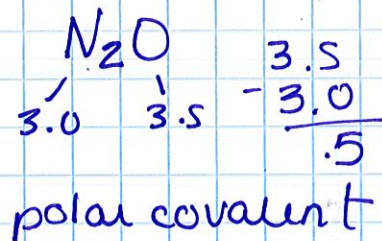 N₂O
3.0 3.5
3.5
- 3.0
.5
polar covalent